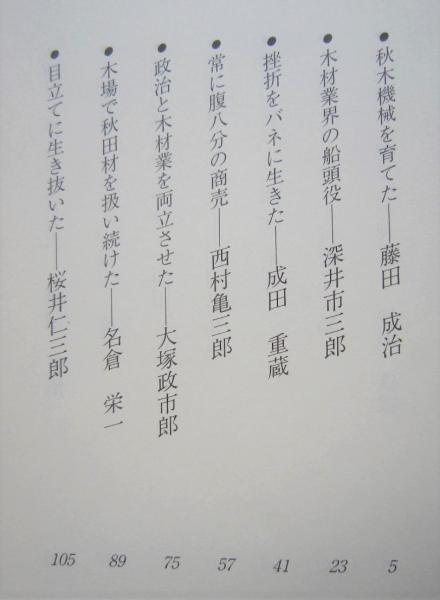 ●秋木機械を育てた――藤田　成治　5
●木材業界の船頭役――深井市三郎　23
●挫折をバネに生きた――成田　重蔵　41
●常に腹八分の商売――西村亀三郎　57
●政治と木材業を両立させた――大塚政市郎　75
●木場で秋田材を扱い続けた――名倉　栄一　89
●目立てに生き抜いた――桜井仁三郎　105